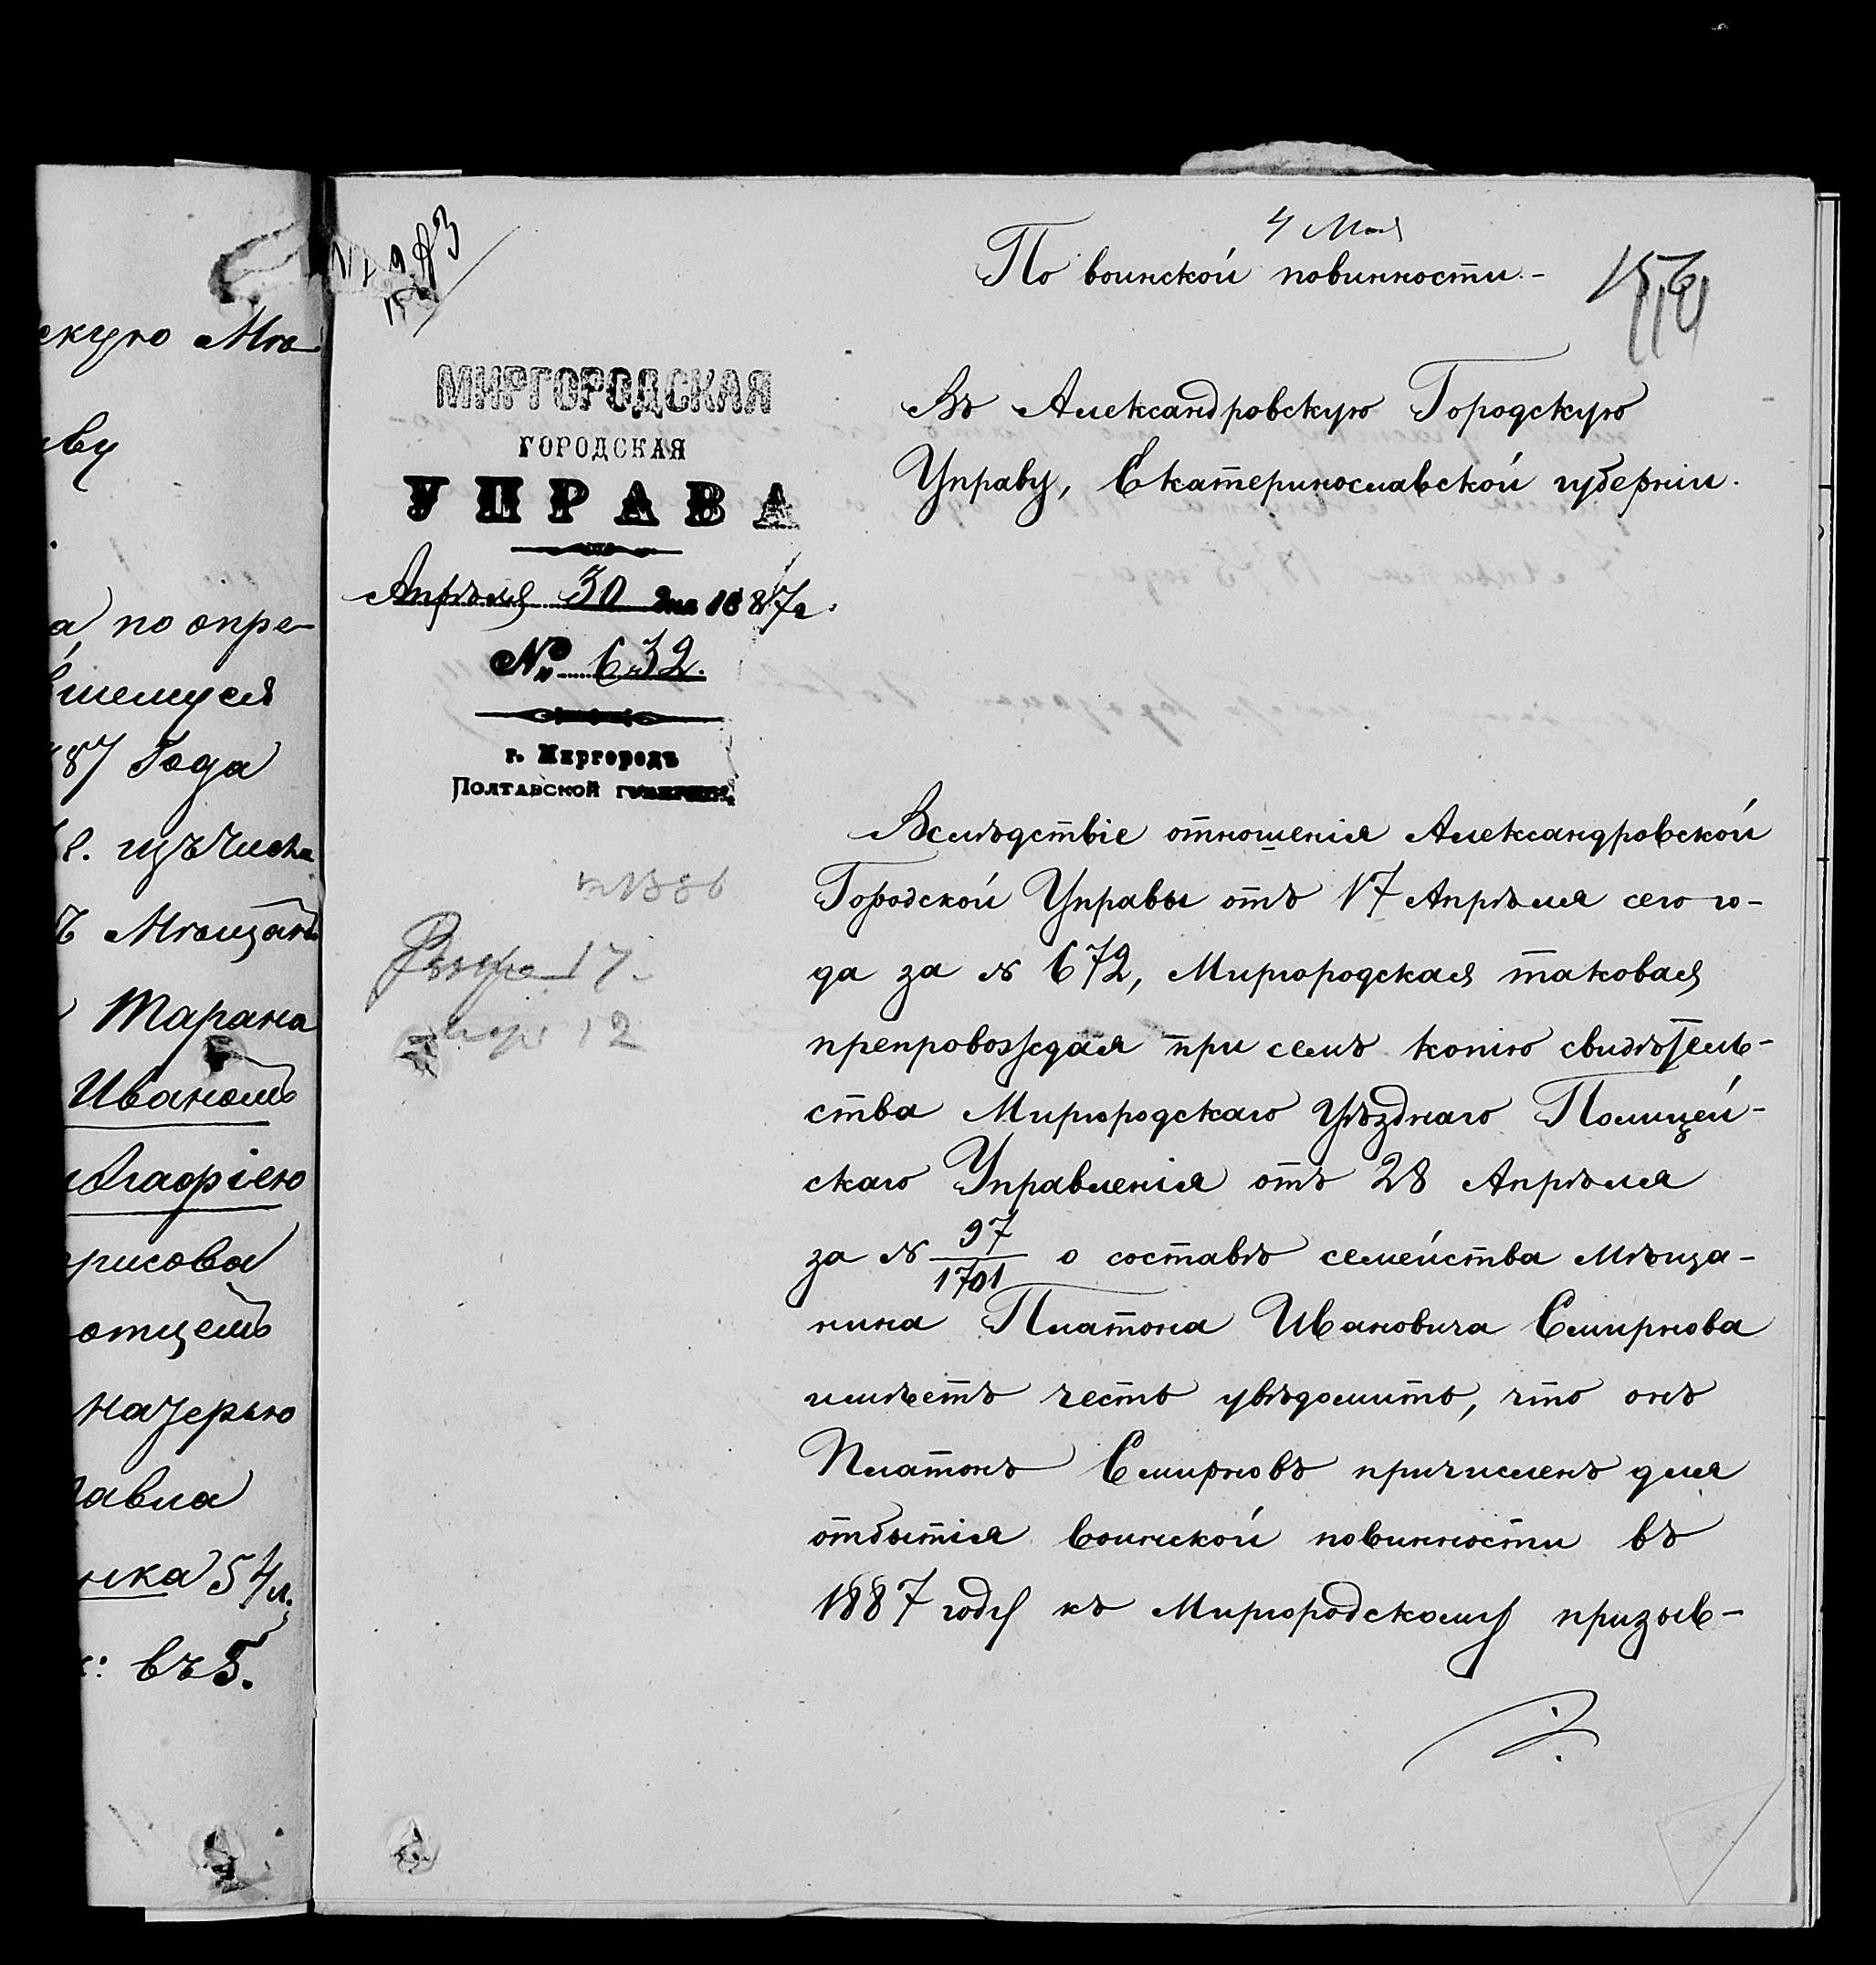 скую Мѣ-
ву
а по опре-
вшемуся
87 Года
изъ числа
Мѣщанъ
Тарана
Иваномъ
Агафіею
рисова
отцемъ
матерью
авла
ика 54 л.
въ 5.
4 Мая
По воинской повинности.-
МИРГОРОДСКАЯ
ГОРОДСКАЯ
УПРАВА
Апрѣля 30 дня 1887 г.
№ 632.
г. Миргородъ
Полтавской губерніи.
Въ Александровскую Городскую
Управу, Екатеринославской губерніи.
Вслѣдствіе отношенія Александровской
Городской Управы отъ 17 Апрѣля сего го-
да за № 672, Миргородская таковая
препровождая при семъ копію свидѣтель-
ства Миргородскаго Уѣзднаго Полицей-
скаго Управленія отъ 28 Апрѣля
за № 97/1701 о составѣ семейства мѣща-
нина Платона Ивановича Смирнова
имѣетъ честь увѣдомить, что онъ
Платонъ Смирновъ причисленъ для
отбытія воинской повинности въ
1887 году къ Миргородскому призыв-